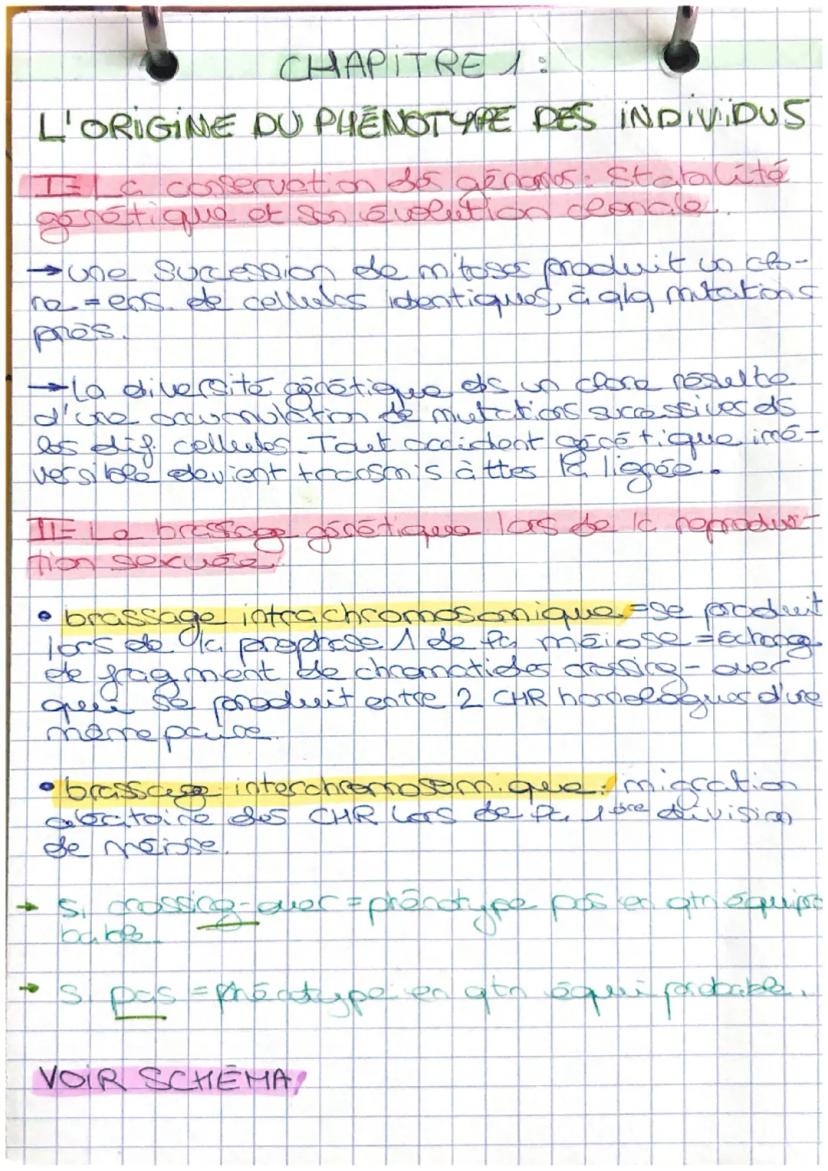 CHAPITRE 1 :
L'ORIGINE DU PHÉNOTYPE DES INDIVIDUS
I= La conservation des génomes: Stabilité
génétique et son évolution clonale.
→ une succession de mitoses produit un clo-
ne = ens. de cellules identiques, à qlq mutations
près.
→ La diversité génétique ds un clone résulte
d'une accumulation de mutations successives ds
les dif. cellules. Tout accident génétique irré-
versible devient transmis à ttes la lignée.
II= Le brassage génétique lors de la reproduc-
tion sexuée
• brassage intrachromosomique = se produit
lors de la prophase 1 de la méiose = échang
de fragment de chromatides crossing-over
qui se produit entre 2 CHR homologues d'une
même paire.
• brassage interchromosomique: migration
aléatoire des CHR lors de la 1ère division
de méiose.
→ Si crossing-over = phénotype pas en qtn équipro
bable
→ Si pas = phénotype en qtn équiprobable.
VOIR SCHÉMA